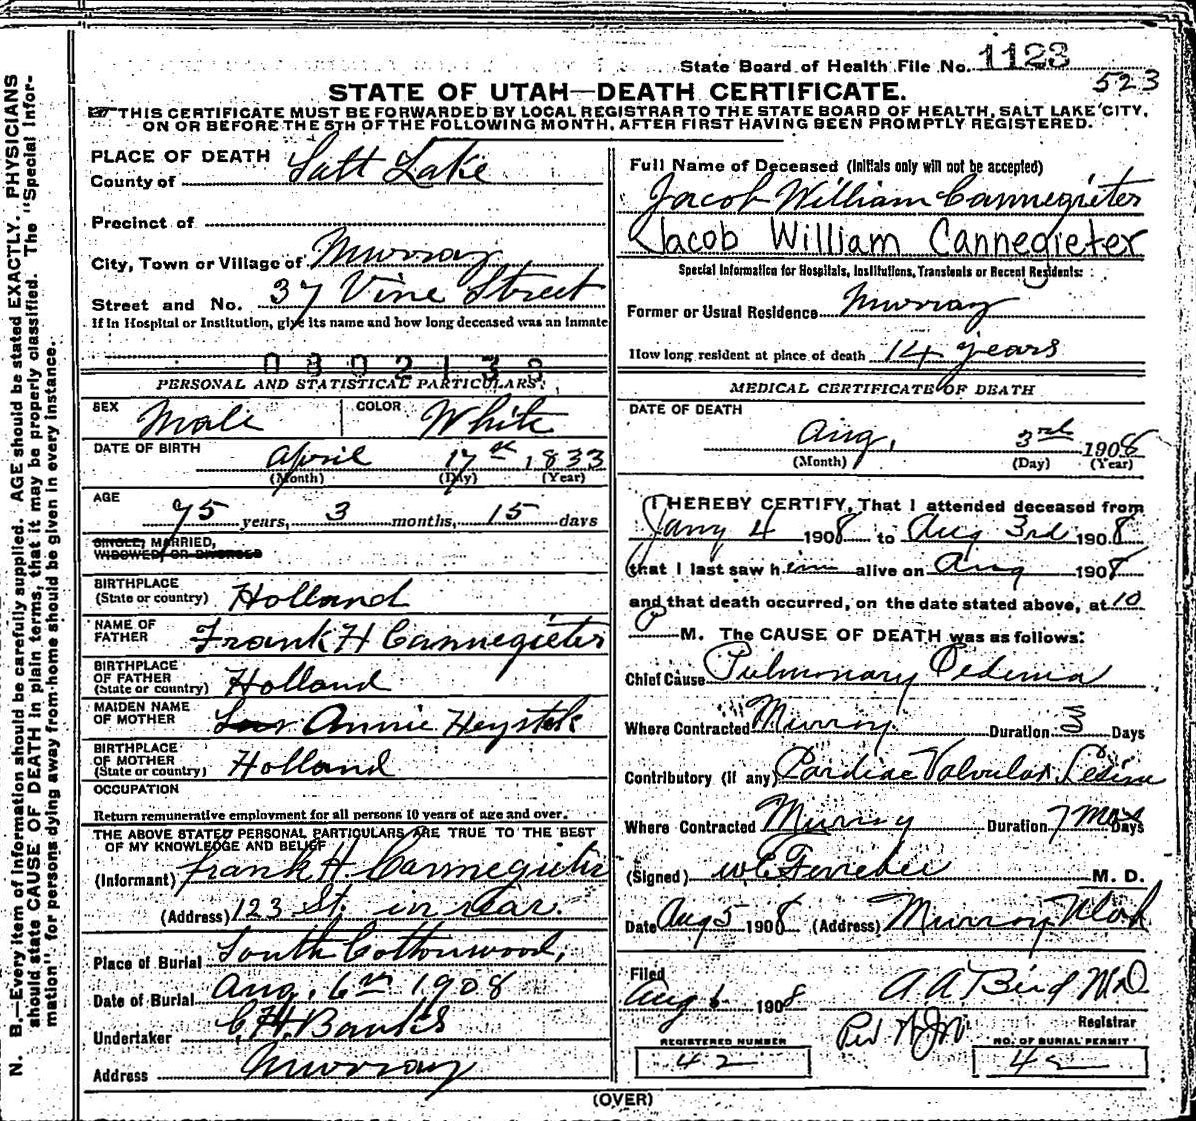 State Board of Health File No. 1123
523
STATE OF UTAH—DEATH CERTIFICATE.
THIS CERTIFICATE MUST BE FORWARDED BY LOCAL REGISTRAR TO THE STATE BOARD OF HEALTH, SALT LAKE CITY,
ON OR BEFORE THE 5TH OF THE FOLLOWING MONTH, AFTER FIRST HAVING BEEN PROMPTLY REGISTERED.
N. B.—Every item of information should be carefully supplied. AGE should be stated EXACTLY. PHYSICIANS
should state CAUSE OF DEATH in plain terms, that it may be properly classified. The "Special Infor-
mation" for persons dying away from home should be given in every instance.
PLACE OF DEATH
County of Salt Lake
Precinct of
City, Town or Village of Murray
Street and No. 37 Vine Street
If in Hospital or Institution, give its name and how long deceased was an inmate
PERSONAL AND STATISTICAL PARTICULARS
SEX Male COLOR White
DATE OF BIRTH April 17th, 1833
(Month) (Day) (Year)
AGE
75 years, 3 months, 15 days
SINGLE, MARRIED,
WIDOWED, OR DIVORCED
BIRTHPLACE
(State or country) Holland
NAME OF
FATHER Frank H Cannegieter
BIRTHPLACE
OF FATHER
(State or country) Holland
MAIDEN NAME
OF MOTHER Annie Heystek
BIRTHPLACE
OF MOTHER
(State or country) Holland
OCCUPATION
Return remunerative employment for all persons 10 years of age and over.
THE ABOVE STATED PERSONAL PARTICULARS ARE TRUE TO THE BEST
OF MY KNOWLEDGE AND BELIEF
(Informant) Frank H. Cannegieter
(Address) 123 St. in rear.
Place of Burial South Cottonwood,
Date of Burial Aug. 6th 1908
Undertaker
Address Murray
Full Name of Deceased (Initials only will not be accepted)
Jacob William Cannegieter
Jacob William Cannegieter
Special Information for Hospitals, Institutions, Transients or Recent Residents:
Former or Usual Residence Murray
How long resident at place of death 14 years
MEDICAL CERTIFICATE OF DEATH
DATE OF DEATH
Aug. 3rd 1908
(Month) (Day) (Year)
I HEREBY CERTIFY, That I attended deceased from
Jany 4 1908 to Aug 3rd 1908
that I last saw him alive on Aug 1908
and that death occurred, on the date stated above, at 10
P M. The CAUSE OF DEATH was as follows:
Chief Cause Pulmonary Oedema
Where Contracted Murray Duration 3 Days
Contributory (if any) Cardiac Valvular Lesion
Where Contracted Murray Duration 7 mos Days
(Signed) M. D.
Date Aug 5 1908 (Address) Murray Utah
Filed
Aug 6 1908 A A Bird MD
Registrar
REGISTERED NUMBER
42
NO. OF BURIAL PERMIT
42
(OVER)